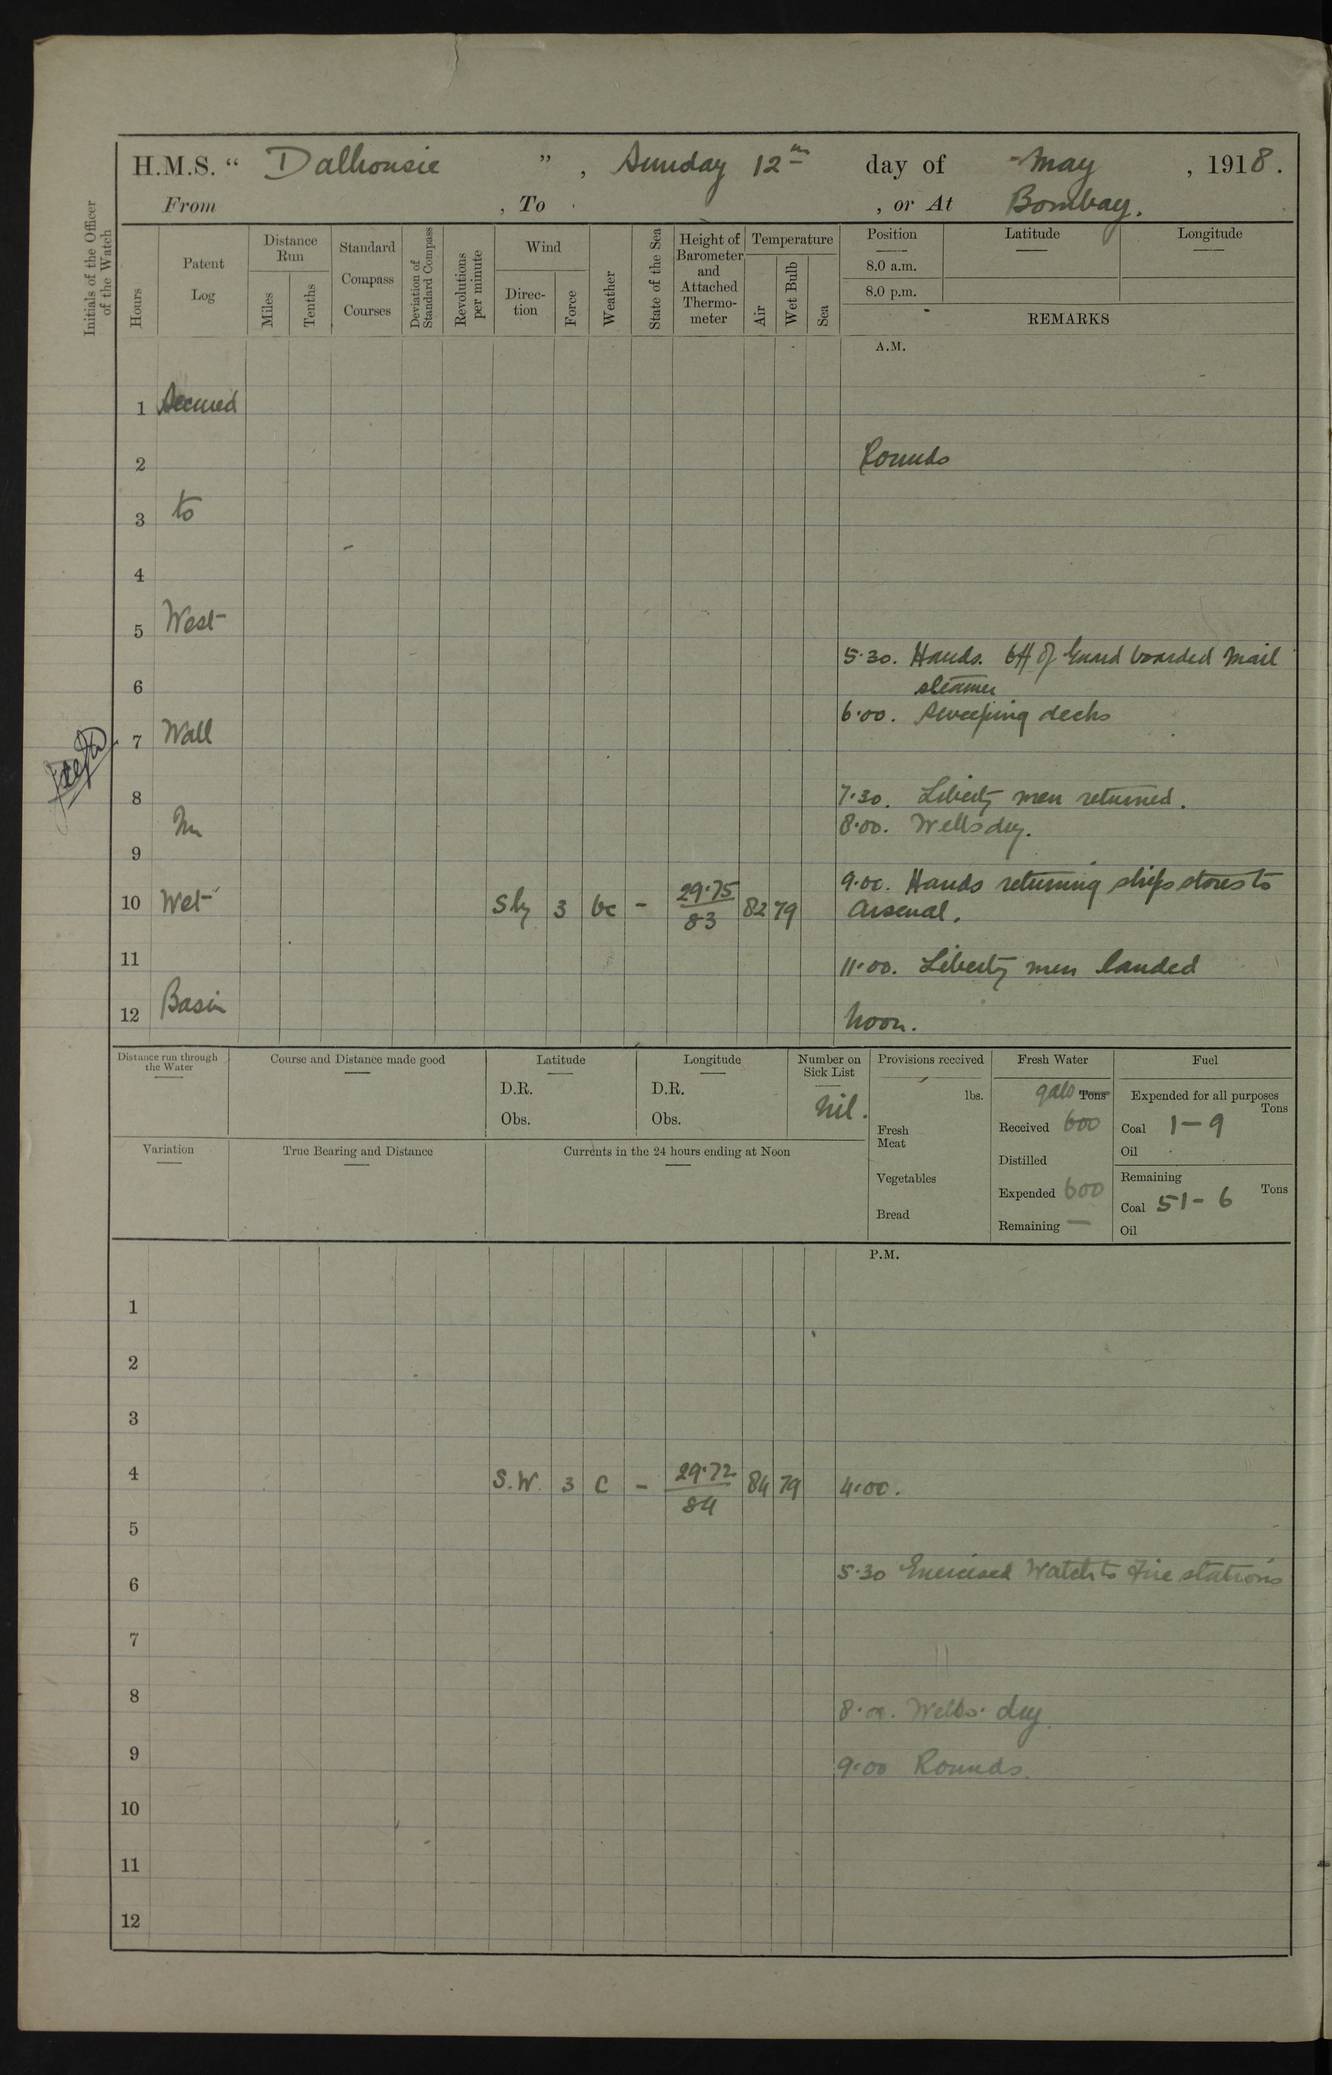 H.M.S. “ Dalhousie ”, Sunday 12th day of May, 1918.
From , To , or At Bombay.
Initials of the Officer of the Watch
Hours
Patent Log
Distance Run
Miles
Tenths
Standard Compass Courses
Deviation of Standard Compass
Revolutions per minute
Wind
Direc-tion
Force
Weather
State of the Sea
Height of Barometer and Attached Thermo-meter
Temperature
Air
Wet Bulb
Sea
Position
Latitude
Longitude
8.0 a.m.
8.0 p.m.
REMARKS
A.M.
1 Secured
2 Rounds
3 to
4
5 West
5.30. Hands. Off of Guard boarded Mail
steamer
6
6.00. Sweeping decks
7 Wall
7.30. Liberty men returned.
8
8.00. Wells dry.
in
9
9.00. Hands returning ships stores to
10 Wet Sly 3 bc - 29.75/83 82 79 Arsenal.
11 11.00. Liberty men landed
12 Basin Noon.
Distance run through the Water
Course and Distance made good
Latitude
D.R.
Obs.
Longitude
D.R.
Obs.
Number on Sick List
Nil.
Provisions received
lbs.
Fresh Meat
Vegetables
Bread
Fresh Water
gals Tons
Received 600
Distilled
Expended 600
Remaining —
Fuel
Expended for all purposes
Tons
Coal 1-9
Oil
Remaining
Tons
Coal 51-6
Oil
Variation
True Bearing and Distance
Currents in the 24 hours ending at Noon
P.M.
1
2
3
4 S.W. 3 c - 29.72/84 84 79 4.00.
5
5.30 Exercised Watch to Fire stations
6
7
8 8.00. Wells dry
9 9.00 Rounds.
10
11
12